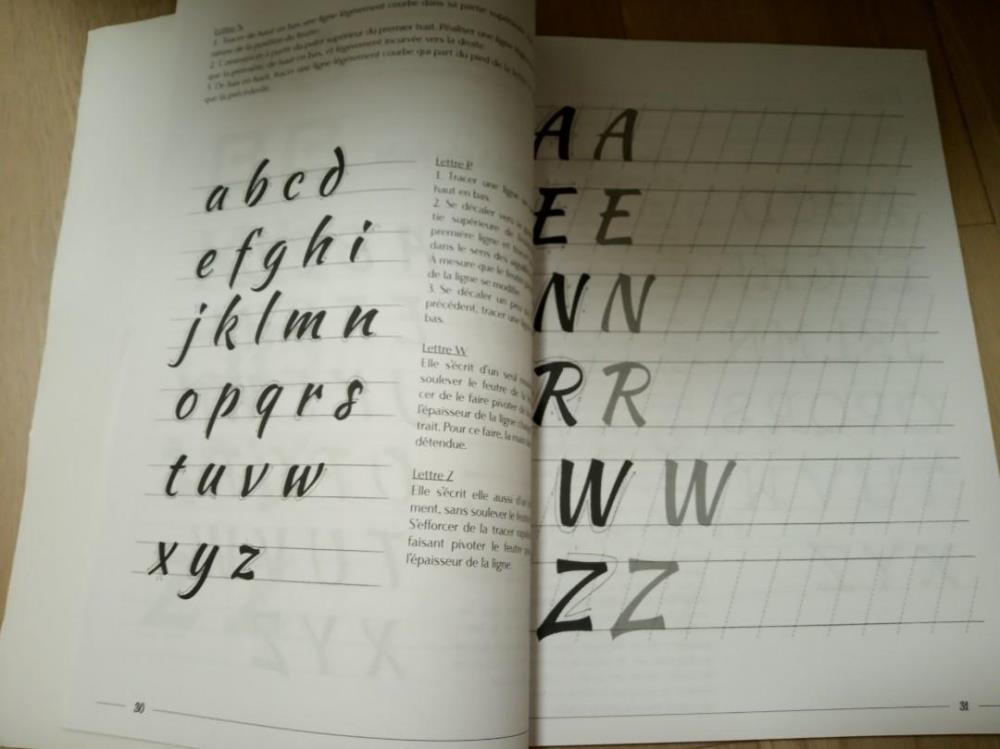 Lettre N
1. Tracer de haut en bas une ligne légèrement courbe dans sa partie supérieure
2. Commencer à partir du point supérieur du premier trait. Réaliser une ligne
que la première, de haut en bas, et légèrement incurvée vers la droite.
3. De bas en haut, tracer une ligne légèrement courbe qui part du pied de la
que la précédente.
a b c d
e f g h i
j k l m n
o p q r s
t u v w
x y z
Lettre P
1. Tracer une ligne
haut en bas.
2. Se décaler vers
tie supérieure de
première ligne et
dans le sens des
À mesure que le feutre
de la ligne se modifie
3. Se décaler un peu
précédent, tracer une
bas.
Lettre W
Elle s'écrit d'un seul
soulever le feutre de la
cer de le faire pivoter
l'épaisseur de la ligne
trait. Pour ce faire, la main
détendue.
Lettre Z
Elle s'écrit elle aussi d'un
ment, sans soulever le
S'efforcer de la tracer
faisant pivoter le feutre
l'épaisseur de la ligne.
30
A A
E E
N N
R R
W W
Z Z
31